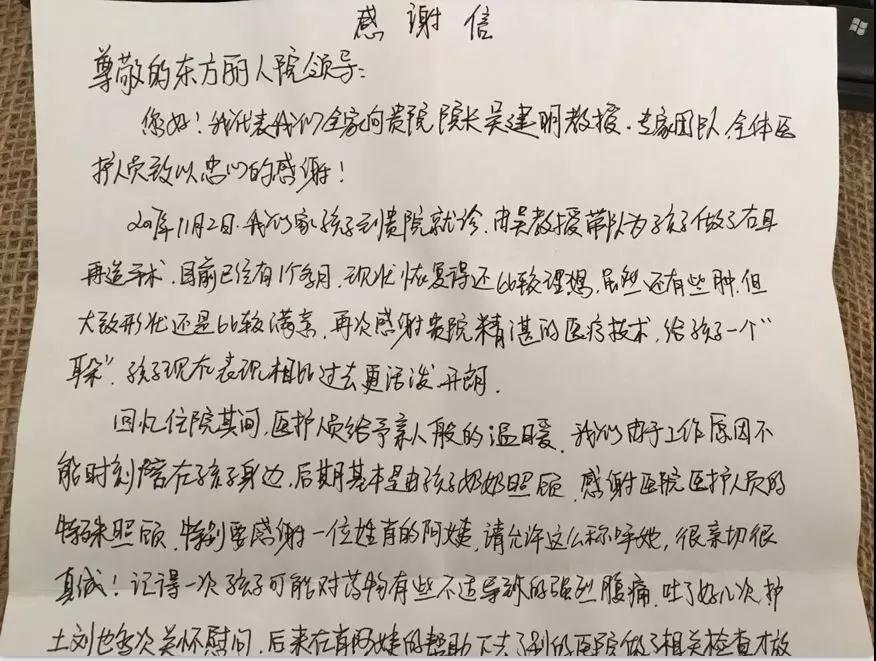 感谢信
尊敬的东方丽人院领导:
您好!我代表我们全家向贵院院长吴建明教授、专家团队、全体医
护人员致以忠心的感谢!
11月2日,我们家孩子到贵院就诊,由吴教授带队为孩子做了右耳
再造手术,目前已经有1个多月,现状恢复得还比较理想,虽然还有些肿,但
大致形状还是比较满意,再次感谢贵院精湛的医疗技术,给孩子一个“
耳朵”,孩子现在表现相比过去更活泼、开朗.
回忆住院其间,医护人员给予亲人般的温暖,我们由于工作原因不
能时刻陪在孩子身边,后期基本是由孩子奶奶照顾,感谢医院医护人员的
特殊照顾,特别要感谢一位姓肖的阿姨,请允许这么称呼她,很亲切很
真诚!记得一次孩子可能对药物有些不适导致的强烈腹痛,吐了好几次,护
士刘也多次关怀慰问,后来在肖阿姨的帮助下去了别的医院做了相关检查才放